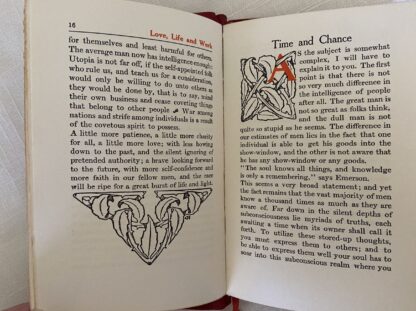 16
Love, Life and Work
for themselves and least harmful for others.
The average man now has intelligence enough:
Utopia is not far off, if the self-appointed folk
who rule us, and teach us for a consideration,
would only be willing to do unto others as
they would be done by, that is to say, mind
their own business and cease coveting things
that belong to other people. War among
nations and strife among individuals is a result
of the covetous spirit to possess.
A little more patience, a little more charity
for all, a little more love; with less bowing
down to the past, and the silent ignoring of
pretended authority; a brave looking forward
to the future, with more self-confidence and
more faith in our fellow men, and the race
will be ripe for a great burst of life and light.
Time and Chance
AS the subject is somewhat
complex, I will have to
explain it to you. The first
point is that there is not
so very much difference in
the intelligence of people
after all. The great man is
not so great as folks think,
and the dull man is not
quite so stupid as he seems. The difference in
our estimates of men lies in the fact that one
individual is able to get his goods into the
show-window, and the other is not aware that
he has any show-window or any goods.
"The soul knows all things, and knowledge
is only a remembering," says Emerson.
This seems a very broad statement; and yet
the fact remains that the vast majority of men
know a thousand times as much as they are
aware of. Far down in the silent depths of
subconsciousness lie myriads of truths, each
awaiting a time when its owner shall call it
forth. To utilize these stored-up thoughts,
you must express them to others; and to
be able to express them well your soul has to
soar into this subconscious realm where you